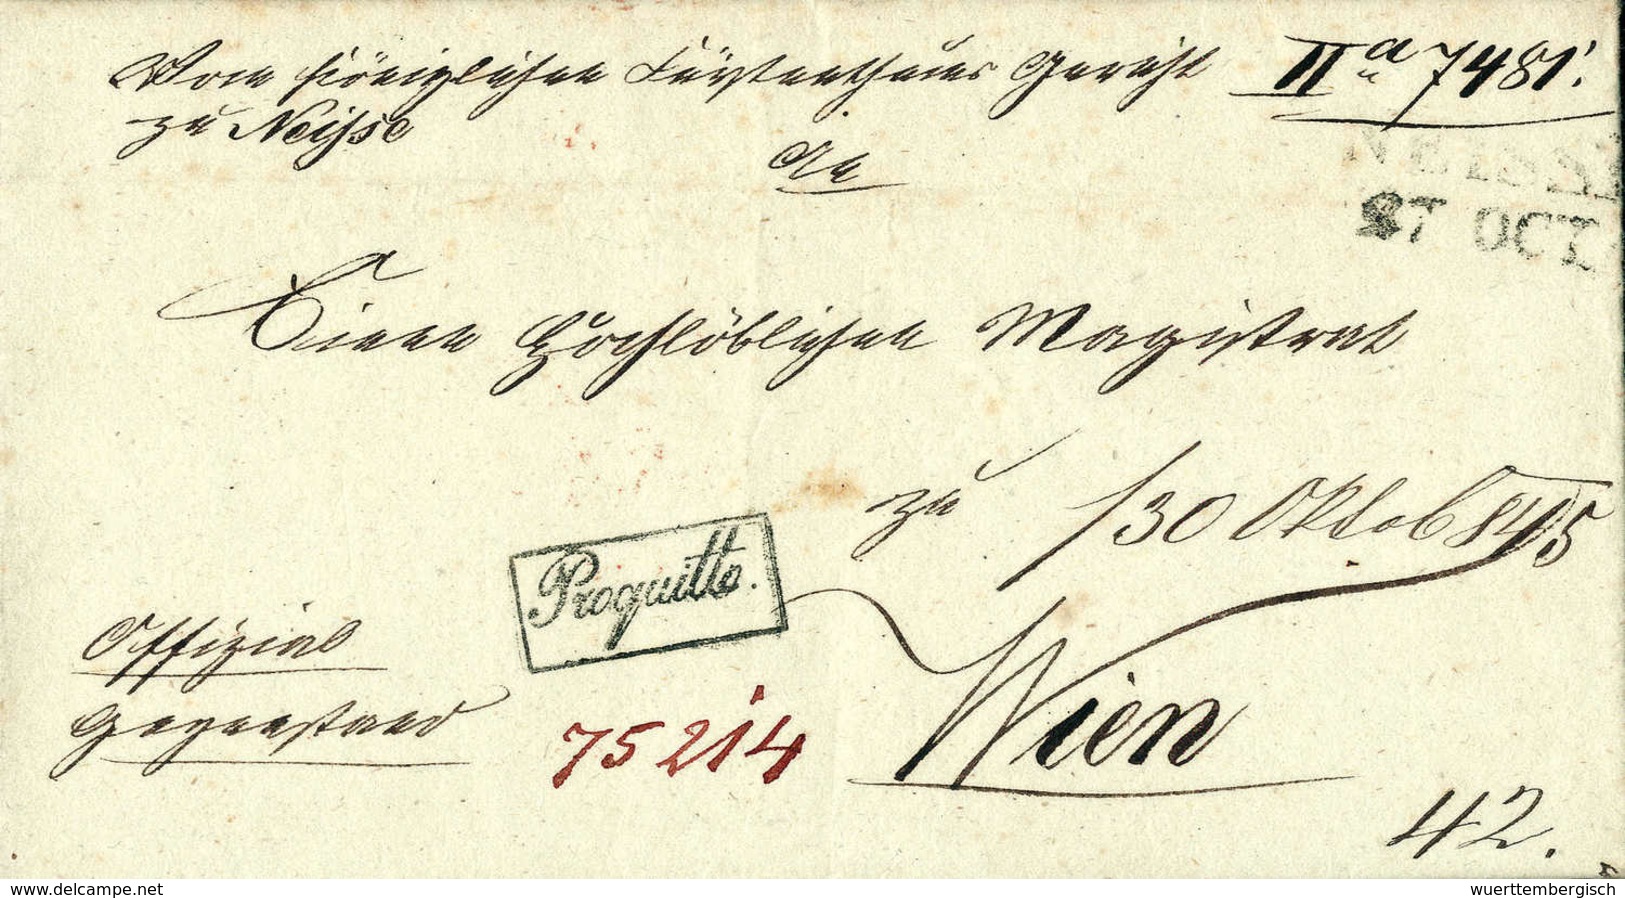 Vom Königlichen Fürstenthums Gericht
zu Neisse
IIa 7481.
NEISSE
27 OCT
An
Einen Hochlöblichen Magistrat
zu
30 Oktob 845
Proquitto.
Wien
Offizial
Gegenstand
75214
42.
www.delcampe.net
wuerttembergisch